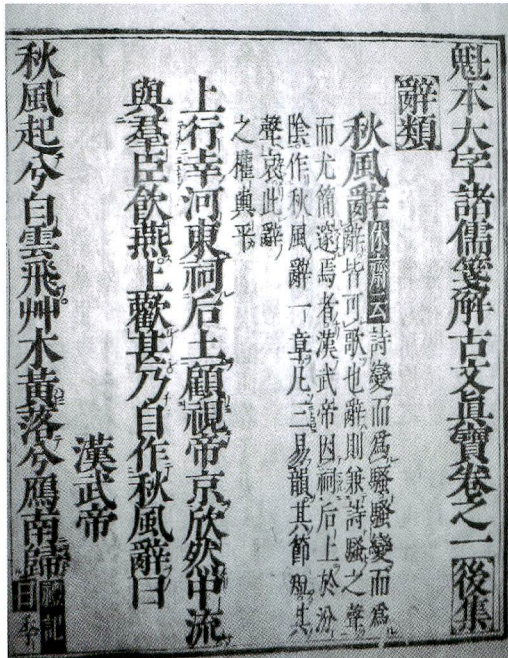 魁本大字諸儒箋解古文眞寶卷之一 後集
辭類
秋風辭 休齋云詩變而爲騷騷變而爲
辭皆可歌也辭則兼詩騷之聲
而尤簡邃焉者漢武帝因祠后土於汾
陰作秋風辭一章凡三易韻其節短其
聲哀此辭
之權輿乎
上行幸河東祠后土顧視帝京欣然中流
與羣臣飲燕上歡甚乃自作秋風辭曰
漢武帝
秋風起兮白雲飛艸木黃落兮鴈南歸